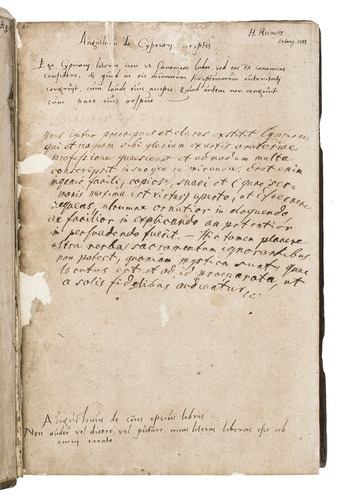 H. Reinolt
Augustinus de Cypriani scriptis
Ego Cypriani literas non vt Canonicas habeo, sed eas ex canonicis
considero, & quod in eis diuinarum scripturarum autoritati
congruit, cum laude eius accipio: quod autem non congruit
cum pace eius respuo
Vnus igitur praecipuus et clarus extitit Cyprianus
qui et magnam sibi gloriam ex artis oratoriae
professione quaesierat et admodum multa
conscripsit in suo genere miranda; Erat enim
ingenio facili, copioso, suavi et (quae ser-
monis maxima est virtus) aperto, ut discernere
nequeas, utrumne ornatior in eloquendo
an facilior in explicando an potentior
in persuadendo fuerit. — Hic tamen placere
ultra verba sacramentum ignorantibus
non potest, quoniam mystica sunt, quae
locutus est et ad id praeparata, ut
a solis fidelibus audiantur,
Augustinus de eius epistolis libris
Non audeo vel dicere, vel putare, meas literas liberas esse ab
omni errato